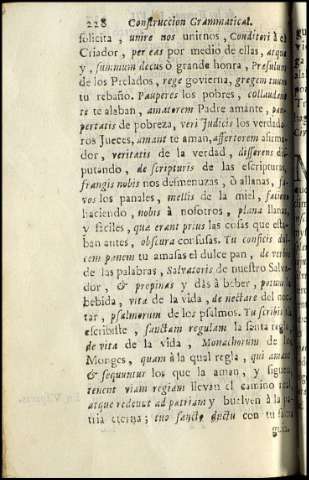 228 Construccion Grammatical.
solicita, unire nos unirnos, Conditori à el
Criador, per eas por medio de ellas, atque
y, summum decus ò grande honra, Præsulum
de los Prelados, rege govierna, gregem tuum
tu rebaño. Pauperes los pobres, collaudent
te te alaban, amatorem Padre amante, pau-
pertatis de pobreza, veri Judicis los verdade-
ros Jueces, amant te aman, assertorem afirma-
dor, veritatis de la verdad, disserens dis-
putando, de scripturis de las escripturas,
frangis nobis nos desmenuzas, ò allanas, fa-
vos los panales, mellis de la miel, faciens
haciendo, nobis à nosotros, plana llanas,
y faciles, quæ erant prius las cosas que esta-
ban antes, obscura confusas. Tu conficis dul-
cem panem tu amasas el dulce pan, de verbis
de las palabras, Salvatoris de nuestro Salva-
dor, & propinas y dàs à beber, potum la
bebida, vita de la vida, de nectare del nec-
tar, psalmorum de los psalmos. Tu scribis tu
escribiste, sanctam regulam la santa regla,
de vita de la vida, Monachorum de los
Monges, quam à la qual regla, qui amant
& sequuntur los que la aman, y siguen
tenent viam regiam llevan el camino real,
atque redeunt ad patriam y buelven à la pa-
tria eterna; tuo sancto ductu con tu santa